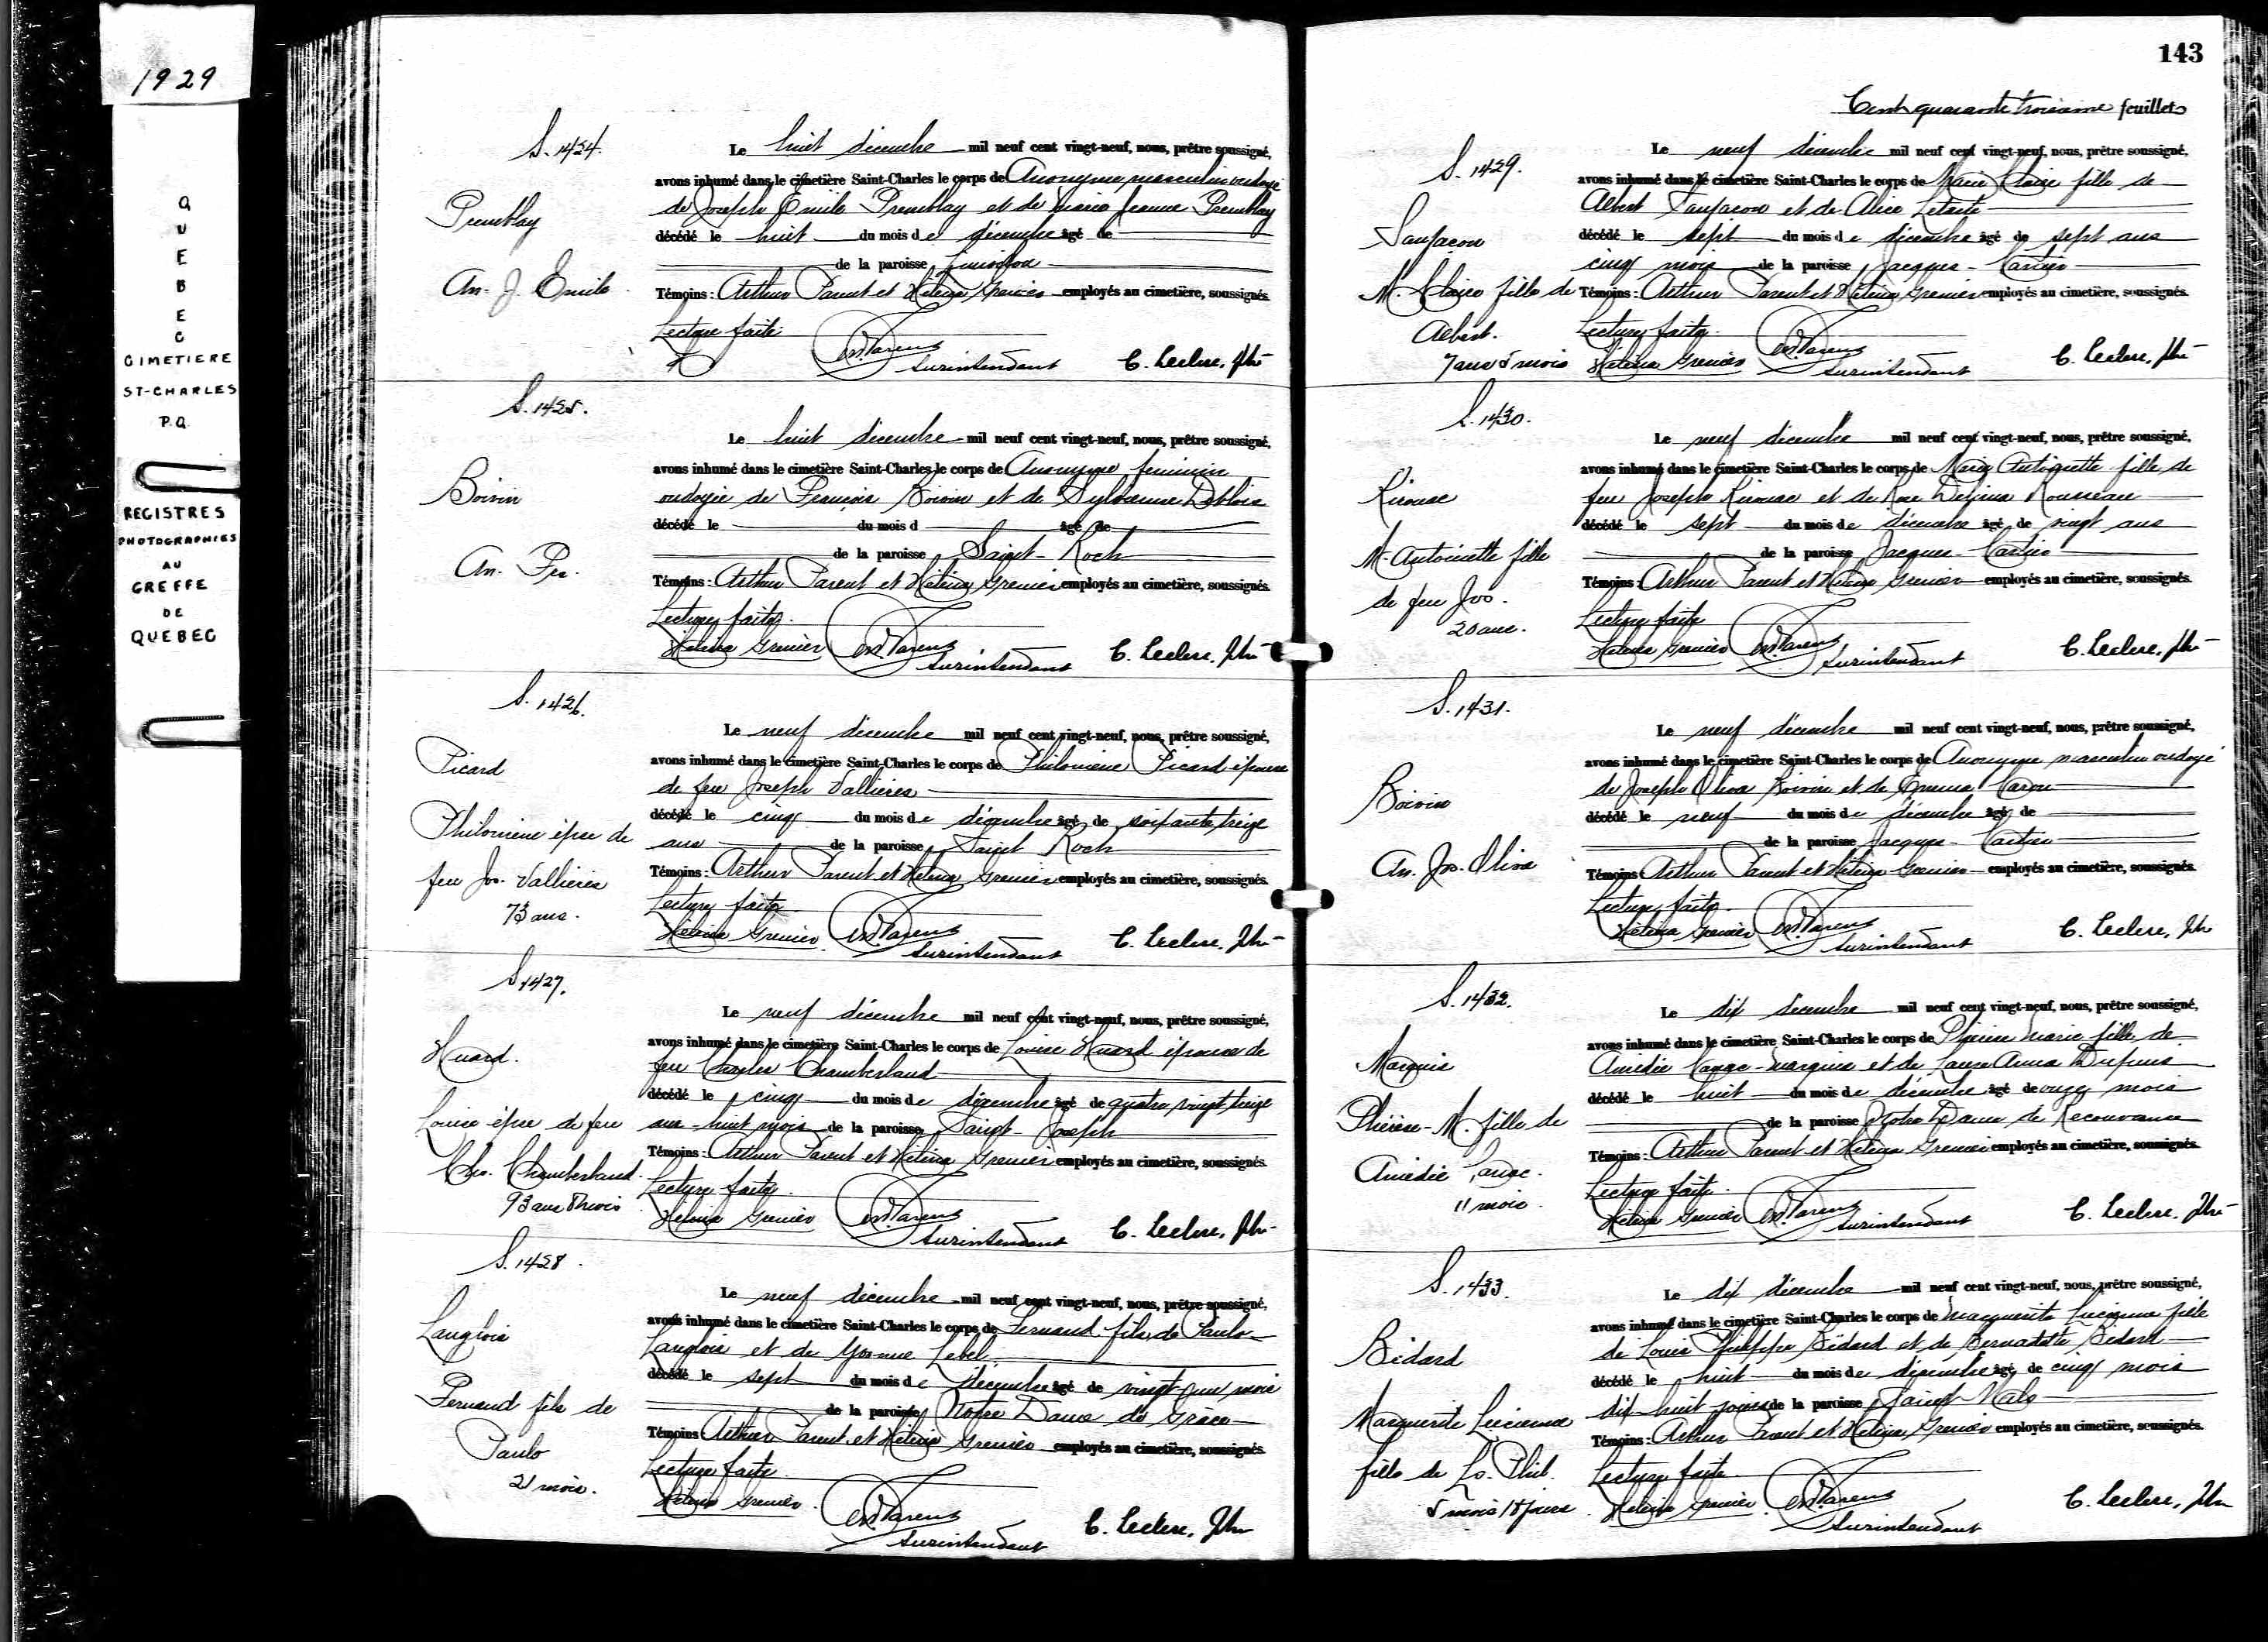 1929
QUEBEC
CIMETIERE
ST-CHARLES
P.Q.
REGISTRES
PHOTOGRAPHIES
AU
GREFFE
DE
QUEBEC
S. 1424.
Tremblay
An. J. Emile
Le huit décembre mil neuf cent vingt-neuf, nous, prêtre soussigné,
avons inhumé dans le cimetière Saint-Charles le corps de Anonyme masculin ondoyé
de Joseph Emile Tremblay et de Marie Jeanne Tremblay
décédé le huit du mois de décembre âgé de
de la paroisse
Témoins: Arthur Parent et Hélène Grenier employés au cimetière, soussignés.
Lecture faite.
Surintendant C. Leclerc, Ptre
S. 1425.
Boivin
An. Frs.
Le huit décembre mil neuf cent vingt-neuf, nous, prêtre soussigné,
avons inhumé dans le cimetière Saint-Charles le corps de Anonyme feminin
ondoyée de François Boivin et de Sylvanna Deblois
décédé le du mois d âgé de
de la paroisse Saint-Roch
Témoins: Arthur Parent et Hélène Grenier employés au cimetière, soussignés.
Lecture faite.
Hélène Grenier Parent Surintendant C. Leclerc, Ptre
S. 1426.
Picard
Philomène épse de
feu Jos. Vallières
73 ans.
Le neuf décembre mil neuf cent vingt-neuf, nous, prêtre soussigné,
avons inhumé dans le cimetière Saint-Charles le corps de Philomène Picard épouse
de feu Joseph Vallières
décédé le cinq du mois de décembre âgé de soixante treize
ans de la paroisse Saint Roch
Témoins: Arthur Parent et Hélène Grenier employés au cimetière, soussignés.
Lecture faite
Hélène Grenier Parent Surintendant C. Leclerc, Ptre
S. 1427.
Huard.
Louise épse de feu
Chs. Chamberland.
93 ans 8 mois
Le neuf décembre mil neuf cent vingt-neuf, nous, prêtre soussigné,
avons inhumé dans le cimetière Saint-Charles le corps de Louise Huard épouse de
feu Charles Chamberland
décédé le cinq du mois de décembre âgé de quatre vingt treize
ans huit mois de la paroisse Saint-Joseph
Témoins: Arthur Parent et Hélène Grenier employés au cimetière, soussignés.
Lecture faite.
Hélène Grenier Parent Surintendant C. Leclerc, Ptre
S. 1428.
Langlois
Fernand fils de
Paulo
21 mois.
Le neuf décembre mil neuf cent vingt-neuf, nous, prêtre soussigné,
avons inhumé dans le cimetière Saint-Charles le corps de Fernand fils de Paulo
Langlois et de Yvonne Lebel
décédé le sept du mois de décembre âgé de vingt-un mois
de la paroisse Notre Dame de Grâce
Témoins: Arthur Parent et Hélène Grenier employés au cimetière, soussignés.
Lecture faite.
Hélène Grenier. Parent Surintendant C. Leclerc, Ptre
143
Cent quarante troisième feuillet
S. 1429.
Sanfaçon
M. Claire fille de
Albert.
7 ans 5 mois
Le neuf décembre mil neuf cent vingt-neuf, nous, prêtre soussigné,
avons inhumé dans le cimetière Saint-Charles le corps de Marie Claire fille de
Albert Sanfaçon et de Alice Letarte
décédé le sept du mois de décembre âgé de sept ans
cinq mois de la paroisse Jacques-Cartier
Témoins: Arthur Parent et Hélène Grenier employés au cimetière, soussignés.
Lecture faite.
Hélène Grenier Parent Surintendant C. Leclerc, Ptre
S. 1430.
Kirouac
M. Antoinette fille
de feu Jos.
20 ans.
Le neuf décembre mil neuf cent vingt-neuf, nous, prêtre soussigné,
avons inhumé dans le cimetière Saint-Charles le corps de Marie Antoinette fille de
feu Joseph Kirouac et de Rose Delima Rousseau
décédé le sept du mois de décembre âgé de vingt ans
de la paroisse Jacques-Cartier
Témoins: Arthur Parent et Hélène Grenier employés au cimetière, soussignés.
Lecture faite
Hélène Grenier Parent Surintendant C. Leclerc, Ptre
S. 1431.
Boivin
An. Jos. Oliva
Le neuf décembre mil neuf cent vingt-neuf, nous, prêtre soussigné,
avons inhumé dans le cimetière Saint-Charles le corps de Anonyme masculin ondoyé
de Joseph Oliva Boivin et de Emma Caron
décédé le neuf du mois de décembre âgé de
de la paroisse Jacques-Cartier
Témoins Arthur Parent et Hélène Grenier employés au cimetière, soussignés.
Lecture faite.
Hélène Grenier Parent Surintendant C. Leclerc, Ptre
S. 1432.
Marquis
Thérèse-M. fille de
Amédée Canac.
11 mois.
Le dix décembre mil neuf cent vingt-neuf, nous, prêtre soussigné,
avons inhumé dans le cimetière Saint-Charles le corps de Thérèse Marie fille de
Amédée Canac-Marquis et de Laura Anna Dupuis
décédé le huit du mois de décembre âgé de onze mois
de la paroisse Notre Dame de Recouvrance
Témoins: Arthur Parent et Hélène Grenier employés au cimetière, soussignés.
Lecture faite.
Hélène Grenier Parent Surintendant C. Leclerc, Ptre
S. 1433.
Bédard
Marguerite Lucienne
fille de Ls. Phil.
5 mois 18 jours
Le dix décembre mil neuf cent vingt-neuf, nous, prêtre soussigné,
avons inhumé dans le cimetière Saint-Charles le corps de Marguerite Lucienne fille
de Louis Philippe Bédard et de Bernadette Bédard
décédé le huit du mois de décembre âgé de cinq mois
dix-huit jours de la paroisse Saint-Malo
Témoins: Arthur Parent et Hélène Grenier employés au cimetière, soussignés.
Lecture faite.
Hélène Grenier. Parent Surintendant C. Leclerc, Ptre